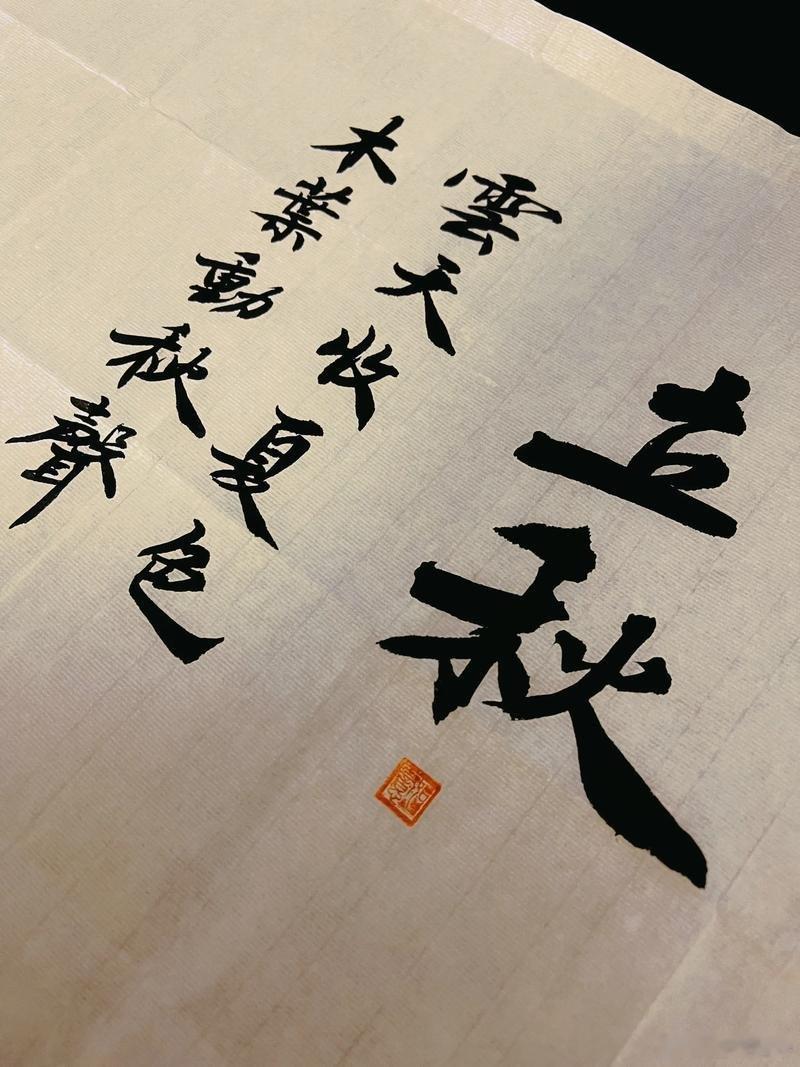 立秋
雲天收夏色
木葉動秋聲